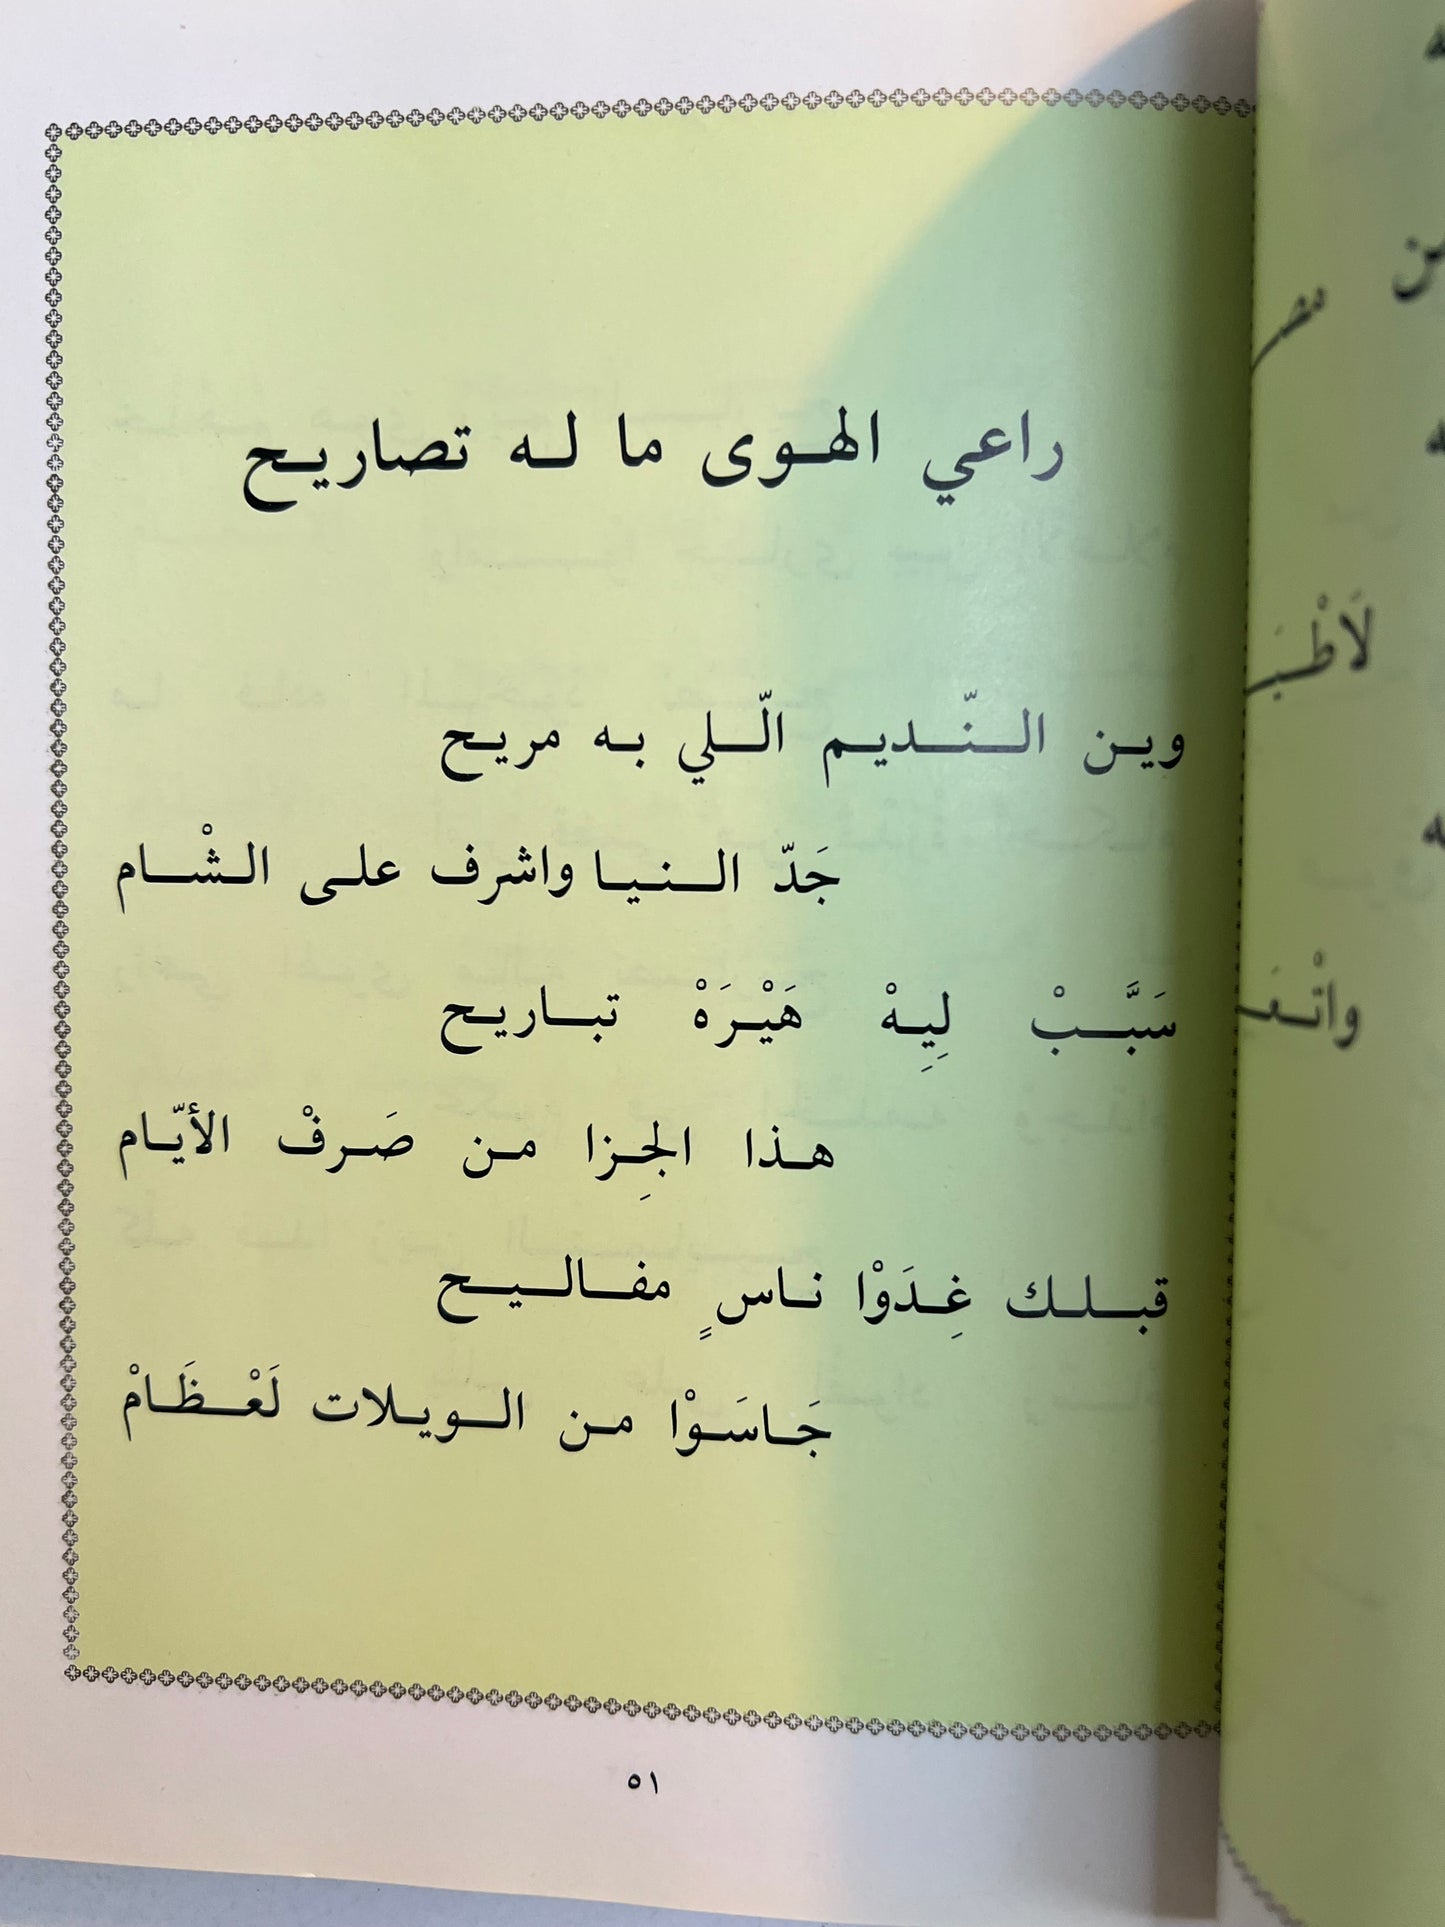 راعي الهوى ما له تصاريح
وين النّديم الّلي به مريح
جَدّ النيا واشرف على الشْام
سَبَّبْ لِيِهْ هَيْرَهْ تباريح
هذا الجِزا من صَرفْ الأيّام
قبلك غِدَوْا ناسٍ مفاليح
جَاسَوْا من الويلات لَعْظَامْ
٥١